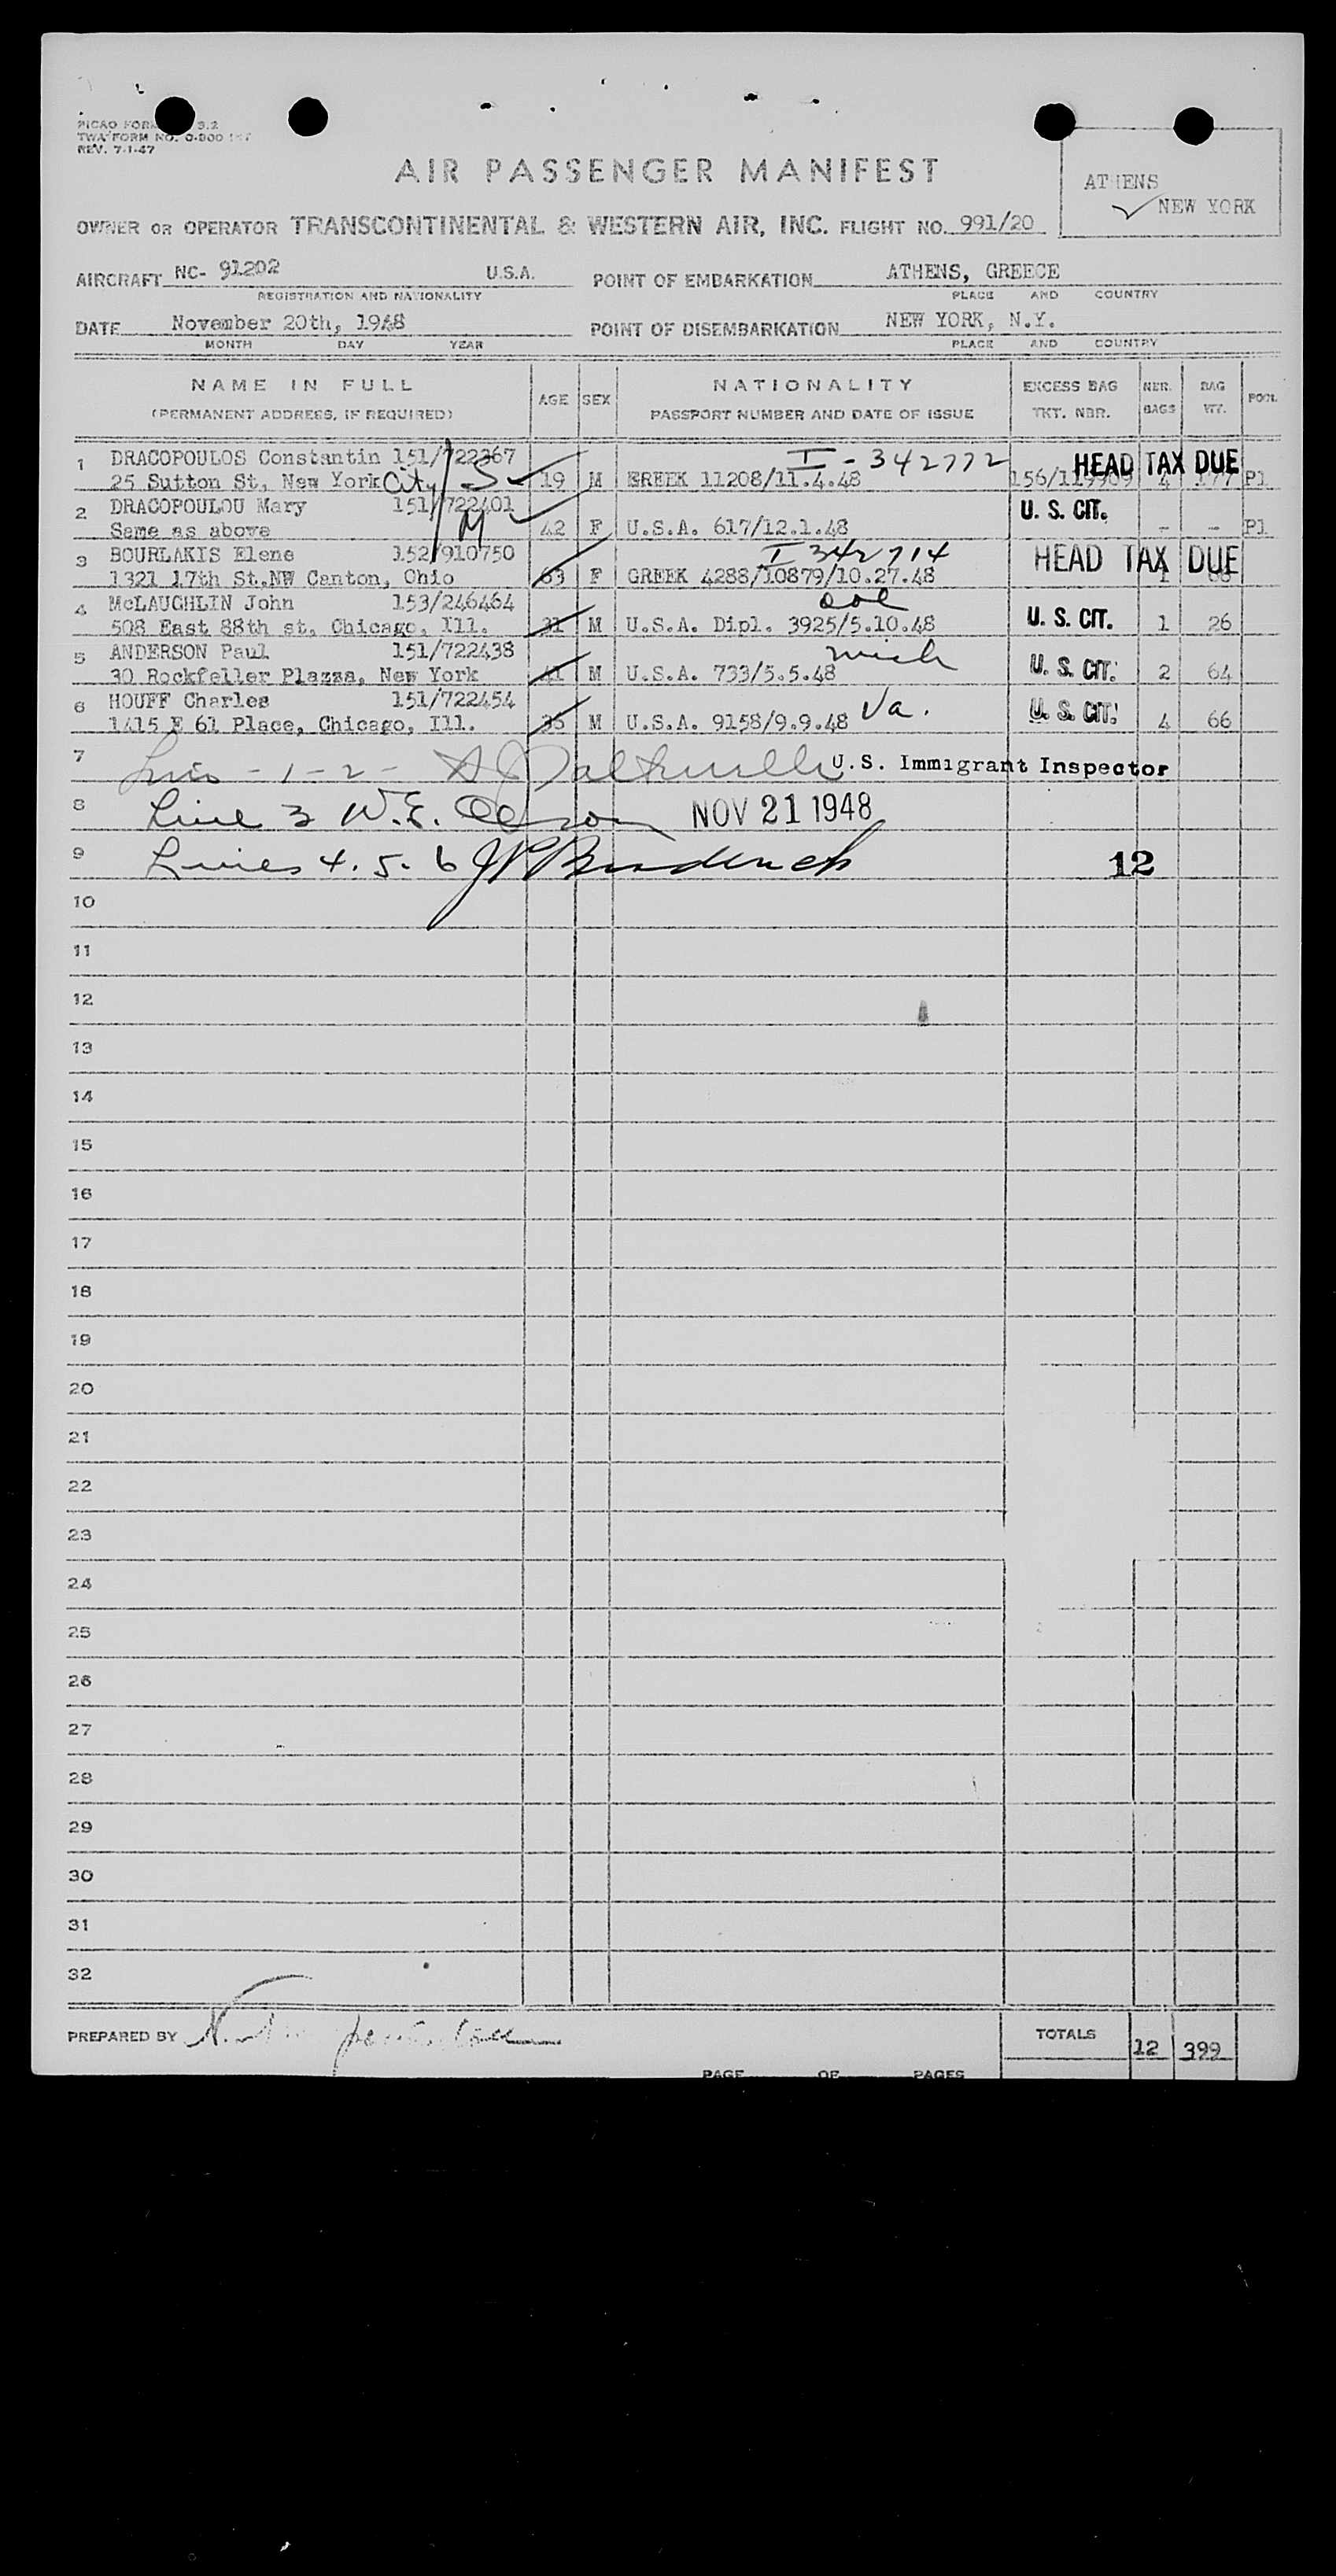 PICAO FORM 9.2
TWA FORM NO. 0-800 INT
REV. 7-1-47
AIR PASSENGER MANIFEST
ATHENS
NEW YORK
OWNER OR OPERATOR TRANSCONTINENTAL & WESTERN AIR, INC. FLIGHT NO. 991/20
AIRCRAFT NC- 91202 U.S.A. POINT OF EMBARKATION ATHENS, GREECE
REGISTRATION AND NATIONALITY PLACE AND COUNTRY
DATE November 20th, 1948 POINT OF DISEMBARKATION NEW YORK, N.Y.
MONTH DAY YEAR PLACE AND COUNTRY
NAME IN FULL AGE SEX NATIONALITY EXCESS BAG NBR. BAG
(PERMANENT ADDRESS, IF REQUIRED) PASSPORT NUMBER AND DATE OF ISSUE TKT. NBR. BAGS WT.
1 DRACOPOULOS Constantin 151/722367 I-342772 HEAD TAX DUE
25 Sutton St, New York City S 19 M GREEK 11208/11.4.48 156/119909 4 177 Pl
2 DRACOPOULOU Mary 151/722401 U. S. CIT.
Same as above M 42 F U.S.A. 617/12.1.48 - - Pl
3 BOURLAKIS Elene 152/910750 I 342714 HEAD TAX DUE
1321 17th St.NW Canton, Ohio 63 F GREEK 4288/10879/10.27.48 1
4 McLAUGHLIN John 153/246464
508 East 88th st, Chicago, Ill. 31 M U.S.A. Dipl. 3925/5.10.48 U. S. CIT. 1 26
5 ANDERSON Paul 151/722438 mich
30 Rockfeller Plazza, New York 41 M U.S.A. 733/5.5.48 U. S. CIT. 2 64
6 HOUFF Charles 151/722454 Va.
1415 E 61 Place, Chicago, Ill. 36 M U.S.A. 9158/9.9.48 U. S. CIT. 4 66
7 Lines - 1 - 2 - U.S. Immigrant Inspector
8 Line 3 W.E. NOV 21 1948
9 Lines 4. 5. 6 12
10
11
12
13
14
15
16
17
18
19
20
21
22
23
24
25
26
27
28
29
30
31
32
PREPARED BY TOTALS 12 399
PAGE OF PAGES